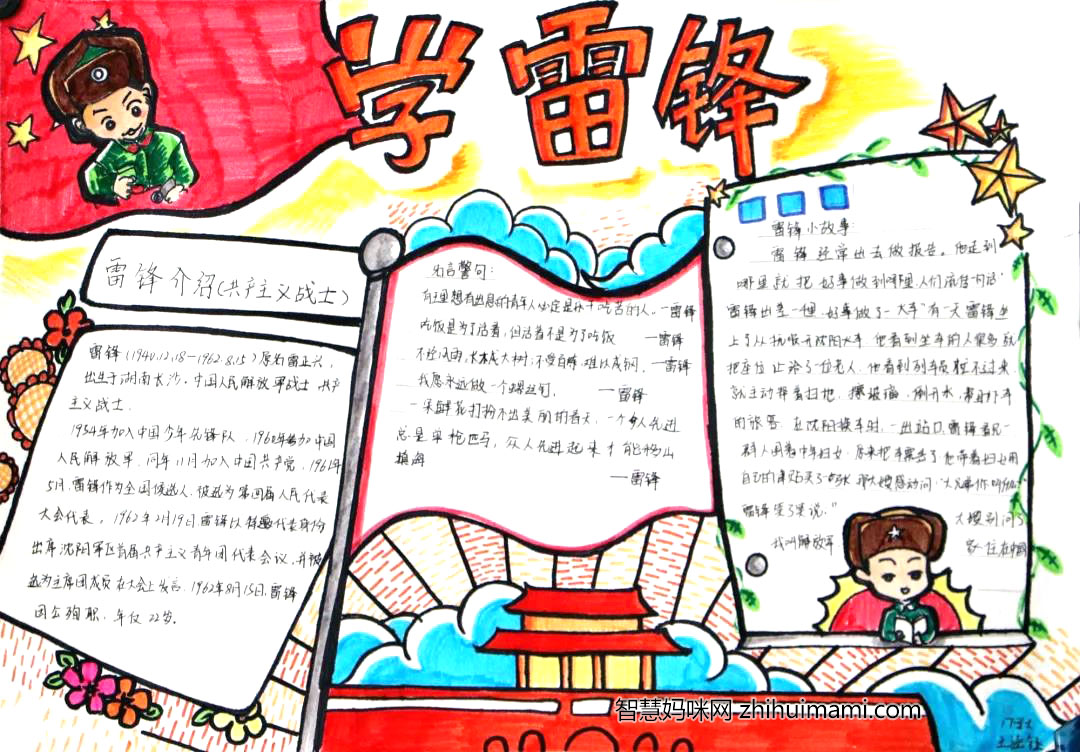 学雷锋
雷锋介绍(共产主义战士)
雷锋(1940.12.18—1962.8.15)原名雷正兴,
出生于湖南长沙,中国人民解放军战士,共产
主义战士.
1954年加入中国少年先锋队,1960年加入中国
人民解放军.同年11月加入中国共产党.1961年
5月,雷锋作为全国候选人,被选为第四届人民代表
大会代表。1962年2月19日雷锋以特邀代表身份
出席沈阳军区首届共产主义青年团代表会议,并被
选为主席团成员在大会上发言.1962年8月15日,雷锋
因公殉职.年仅22岁。
名言警句:
有理想有出息的青年人必定是乐于吃苦的人。一雷锋
吃饭是为了活着,但活着不是为了吃饭 一雷锋
不经风雨,长不成大树;不受百炼,难以成钢. 一雷锋
我愿永远做一个螺丝钉. 一雷锋
一朵鲜花打扮不出美丽的春天,一个人先进
总是单枪匹马,众人先进起来才能移山
填海
一雷锋
雷锋小故事
雷锋经常出去做报告。他走到
哪里就把好事做到哪里,人们流传一句话"
雷锋出差一千里,好事做了一火车"有一天雷锋坐
上了从抚顺开沈阳火车.他看到坐车的人很多就
把座位让给了一位老人.他看到列车员忙不过来
就主动帮着扫地.擦玻璃.倒开水,帮助下车
的旅客 在沈阳换车时.一出站口,雷锋看见一
群人围着中年妇女.原来把车票丢了他带着妇女用
自己的津贴买了车票 那大嫂感动问:
雷锋笑了笑说."大嫂别问了
我叫解放军 家住在中国
智慧妈咪网 zhihuimami.com